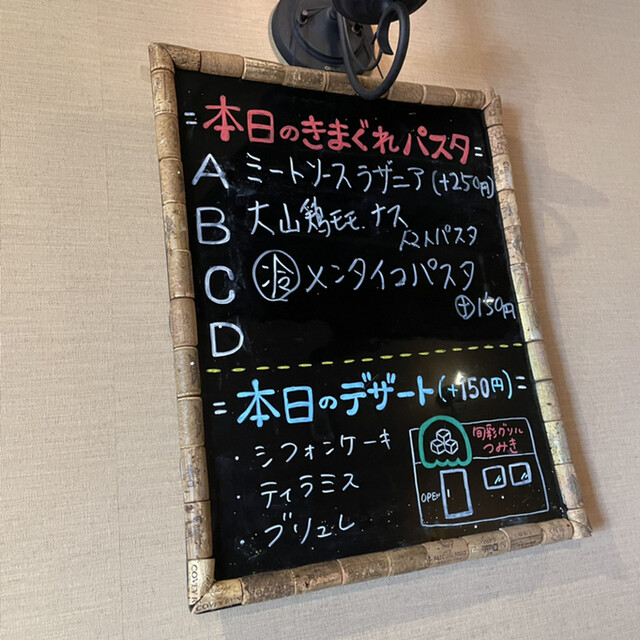 =本日のきまぐれパスタ=
A ミートソースラザニア(+250円)
B 大山鶏モモ.ナス
トマトパスタ
C 冷 メンタイコパスタ
⊕150円
D
=本日のデザート(+150円)=
・シフォンケーキ
・ティラミス
・ブリュレ
旬彩グリル
つみき
OPEN